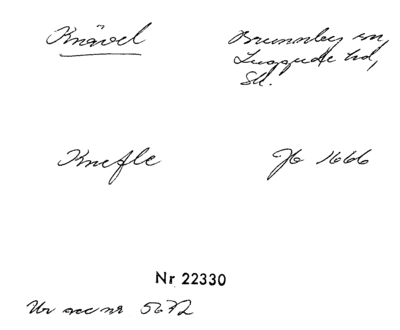 Knävel
Brunnby sn,
Luggude hd,
Sk.
Knefle
Jb 1666
Nr 22330
Ur acc nr 5672